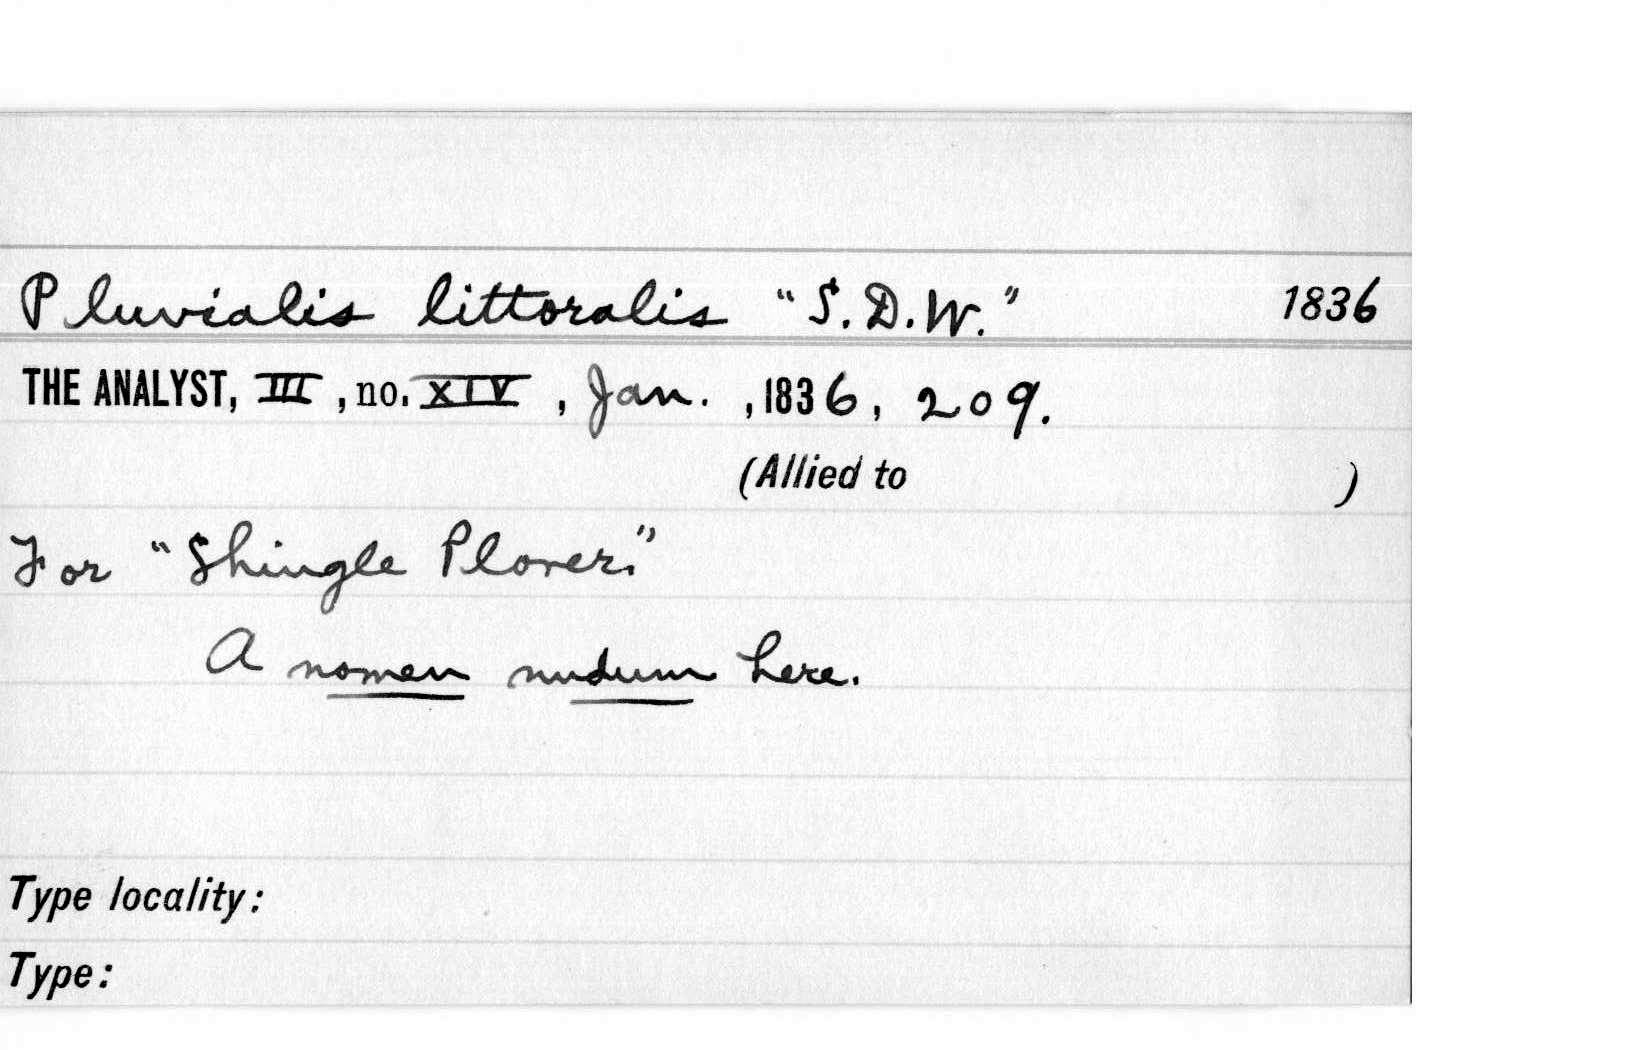 Pluvialis littoralis "S.D.W." 1836
THE ANALYST, III, no. XIV, Jan., 1836, 209.
(Allied to )
For "Shingle Plover."
A nomen nudum here.
Type locality:
Type: